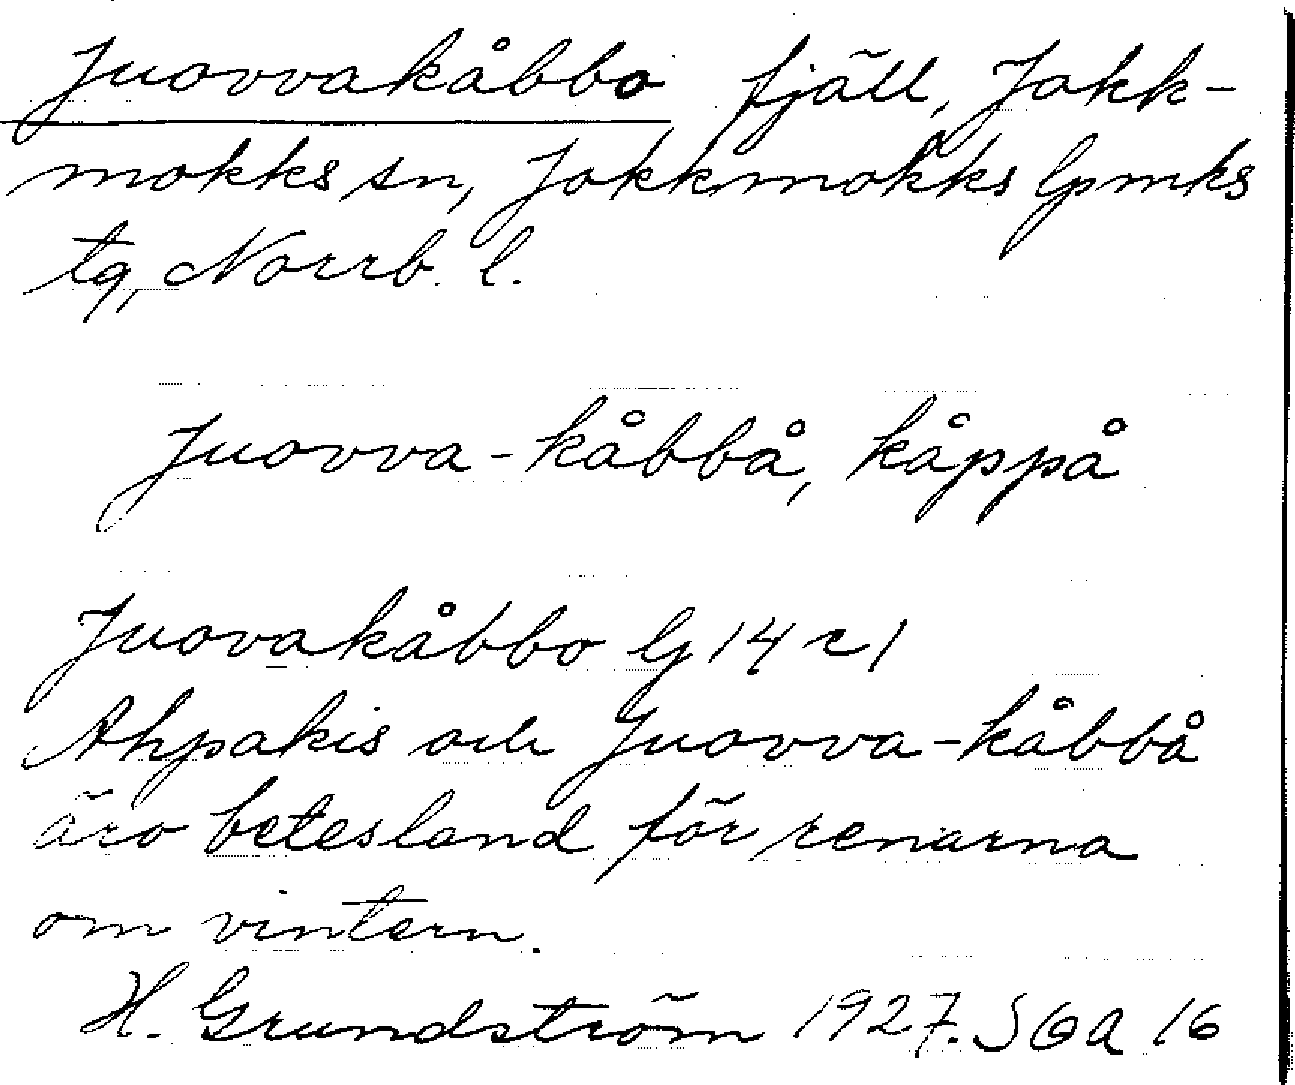 Juovvakåbbo fjäll, Jokk-
mokks sn, Jokkmokks lpmks
tg, Norrb. l.
Juovva-kåbbå, kåppå
Juovakåbbo lg 14 r1
Ahpakis och Juovva-kåbbå
äro betesland för renarna
om vintern.
H. Grundström 1927. SGA 16